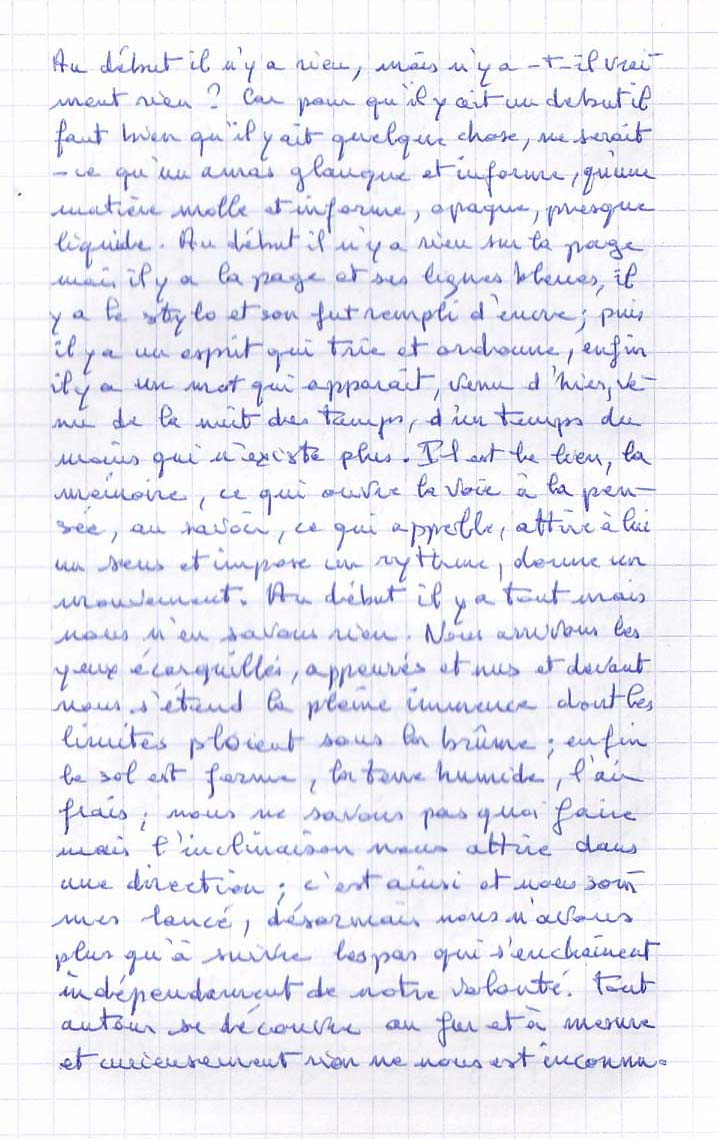 Au début il n'y a rien, mais n'y a-t-il vrai-
ment rien ? Car pour qu'il y ait un debut il
faut bien qu'il y ait quelque chose, ne serait
-ce qu'un amas glauque et informe, qu'une
matière molle et informe, opaque, presque
liquide. Au début il n'y a rien sur la page
mais il y a la page et ses lignes bleues, il
y a le stylo et son fut rempli d'encre ; puis
il y a un esprit qui trie et ordonne, enfin
il y a un mot qui apparaît, venu d'hier, ve-
nu de la nuit des temps, d'un temps du
moins qui n'existe plus. Il est le lien, la
mémoire, ce qui ouvre la voie à la pen-
sée, au savoir, ce qui appelle, attire à lui
un sens et impose un rythme, donne un
mouvement. Au début il y a tout mais
nous n'en savons rien. Nous arrivons les
yeux écarquillés, appeurés et nus et devant
nous s'étend la pleine immence dont les
limites ploient sous la brûme ; enfin
le sol est ferme, la terre humide, l'air
frais ; nous ne savons pas quoi faire
mais l'inclinaison nous attire dans
une direction ; c'est ainsi et nous som-
mes lancé, désormais nous n'avons
plus qu'à suivre les pas qui s'enchaînent
indépendamment de notre volonté. Tout
autour se découvre au fur et à mesure
et curieusement rien ne nous est inconnu.